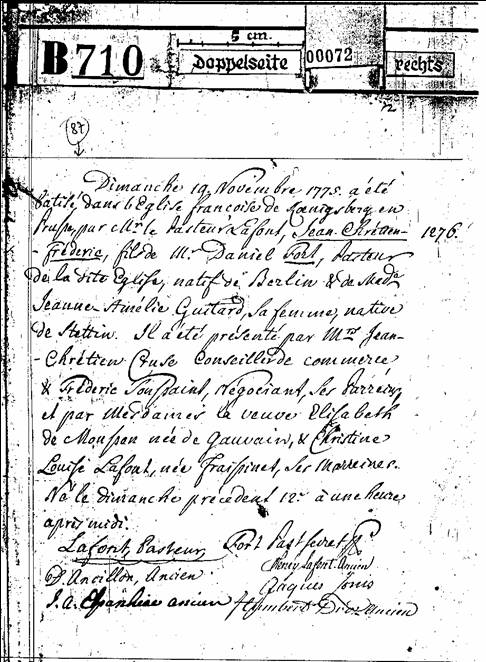 B 710
5 cm.
Doppelseite
00072
rechts
87
Dimanche 19. Novembre 1775. a été
batisé dans l'Eglise françoise de Kœnigsberg en
Prusse, par Mr. le Pasteur Lafont, Jean Chrétien-
-Fréderic, fils de Mr. Daniel Fort, Pasteur
1276.
de la dite Eglise, natif de Berlin & de Made
Jeanne-Amélie Guitard, sa femme, native
de Stettin. Il a été présenté par Mrs Jean-
-Chrétien Cruse Conseiller de commerce
& Fréderic Toussaint, Négociant, ses Parreins,
et par Mesdames la veuve Elisabeth
de Monssan née de Gauvain, & Christine
Louise Lafont, née Fraissinet, ses Marreines.
Né le dimanche précedent 12e à une heure
après midi.
Lafont, Pasteur, Fort Past
Lafont. Ancien
Ancillon, Ancien
Jaques
J. A. ancien
Humbert Ancien